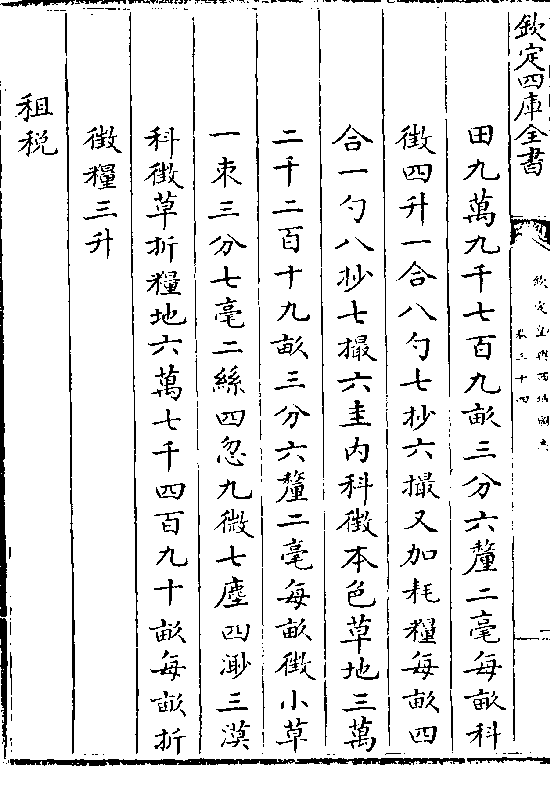 欽定四庫全書
欽定皇輿西域圖志
卷三十四
田九萬九千七百九畝三分六釐二毫每畝科
徵四升一合八勺七抄六撮又加耗糧每畝四
合一勺八抄七撮六圭內科徵本色草地三萬
二千二百十九畝三分六釐二毫每畝徵小草
一束三分七毫二絲四忽九微七塵四渺三漠
科徵草折糧地六萬七千四百九十畝每畝折
徵糧三升
租稅